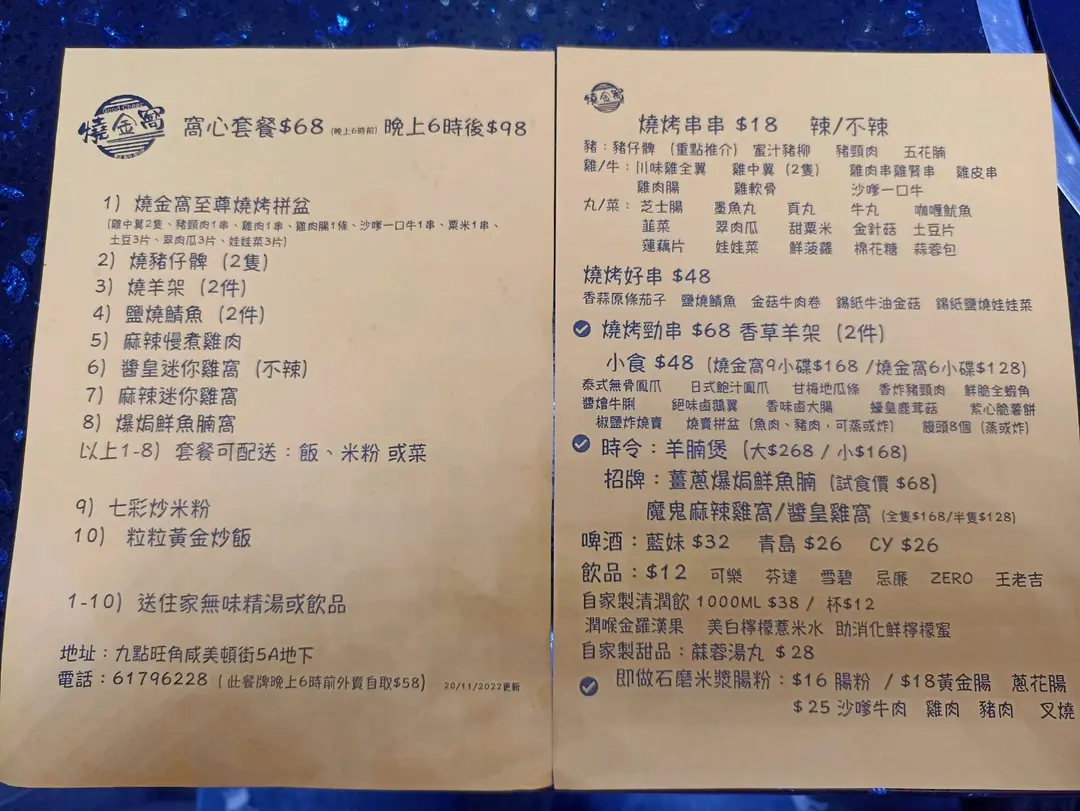 Good Cheer
燒金窩
窩心套餐$68 (晚上6時前) 晚上6時後$98
1) 燒金窩至尊燒烤拼盆
(雞中翼2隻、豬頸肉1串、雞肉1串、雞肉腸1條、沙嗲一口牛1串、粟米1串、
土豆3片、翠肉瓜3片、娃娃菜3片)
2) 燒豬仔髀 (2隻)
3) 燒羊架 (2件)
4) 鹽燒鯖魚 (2件)
5) 麻辣慢煮雞肉
6) 醬皇迷你雞窩 (不辣)
7) 麻辣迷你雞窩
8) 爆焗鮮魚腩窩
以上1-8) 套餐可配送：飯、米粉 或菜
9) 七彩炒米粉
10) 粒粒黃金炒飯
1-10) 送住家無味精湯或飲品
地址：九點旺角咸美頓街5A地下
電話：61796228 (此餐牌晚上6時前外賣自取$58) 20/11/2022更新
燒金窩
燒烤串串 $18 辣/不辣
豬：豬仔髀 (重點推介) 蜜汁豬柳 豬頸肉 五花腩
雞/牛：川味雞全翼 雞中翼 (2隻) 雞肉串雞腎串 雞皮串
雞肉腸 雞軟骨 沙嗲一口牛
丸/菜：芝士腸 墨魚丸 貢丸 牛丸 咖喱魷魚
韮菜 翠肉瓜 甜粟米 金針菇 土豆片
蓮藕片 娃娃菜 鮮菠蘿 棉花糖 蒜蓉包
燒烤好串 $48
香蒜原條茄子 鹽燒鯖魚 金菇牛肉卷 錫紙牛油金菇 錫紙鹽燒娃娃菜
燒烤勁串 $68 香草羊架 (2件)
小食 $48 (燒金窩9小碟$168 /燒金窩6小碟$128)
泰式無骨鳳爪 日式鮑汁鳳爪 甘梅地瓜條 香炸豬頸肉 鮮脆全蝦角
醬燴牛脷 絕味鹵鵝翼 香味鹵大腸 蠔皇鹿茸菇 紫心脆薯餅
椒鹽炸燒賣 燒賣拼盆 (魚肉、豬肉，可蒸或炸) 饅頭8個 (蒸或炸)
時令：羊腩煲 (大$268 / 小$168)
招牌：薑蔥爆焗鮮魚腩 (試食價 $68)
魔鬼麻辣雞窩/醬皇雞窩 (全隻$168/半隻$128)
啤酒：藍妹 $32 青島 $26 CY $26
飲品：$12 可樂 芬達 雪碧 忌廉 ZERO 王老吉
自家製清潤飲 1000ML $38 / 杯$12
潤喉金羅漢果 美白檸檬薏米水 助消化鮮檸檬蜜
自家製甜品：蔴蓉湯丸 $28
即做石磨米漿腸粉：$16 腸粉 / $18黃金腸 蔥花腸
$25 沙嗲牛肉 雞肉 豬肉 叉燒